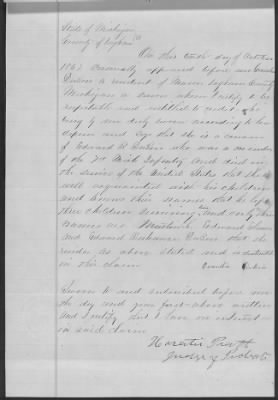 State of Michigan
County of Ingham SS
On this tenth day of October
1862 Personally appeared before me
a resident of Mason Ingham County
Michigan a person whom I certify to be
respectable and entitled to credit who
being by me duly sworn according to law
deposes and says that she is a
of Edward W. who was a member
of the 7th Mich Infantry and died in
the service of the United States that she is
well acquainted with his children
and knows their names that he left
three children surviving him and only three
names are Edward
and Edward that she
resides as above stated and is disinterested
in this claim
Sworn to and subscribed before me
the day and year first above written
and I certify that I have no interest
in said claim
Horatio Pratt
Judge of Probate